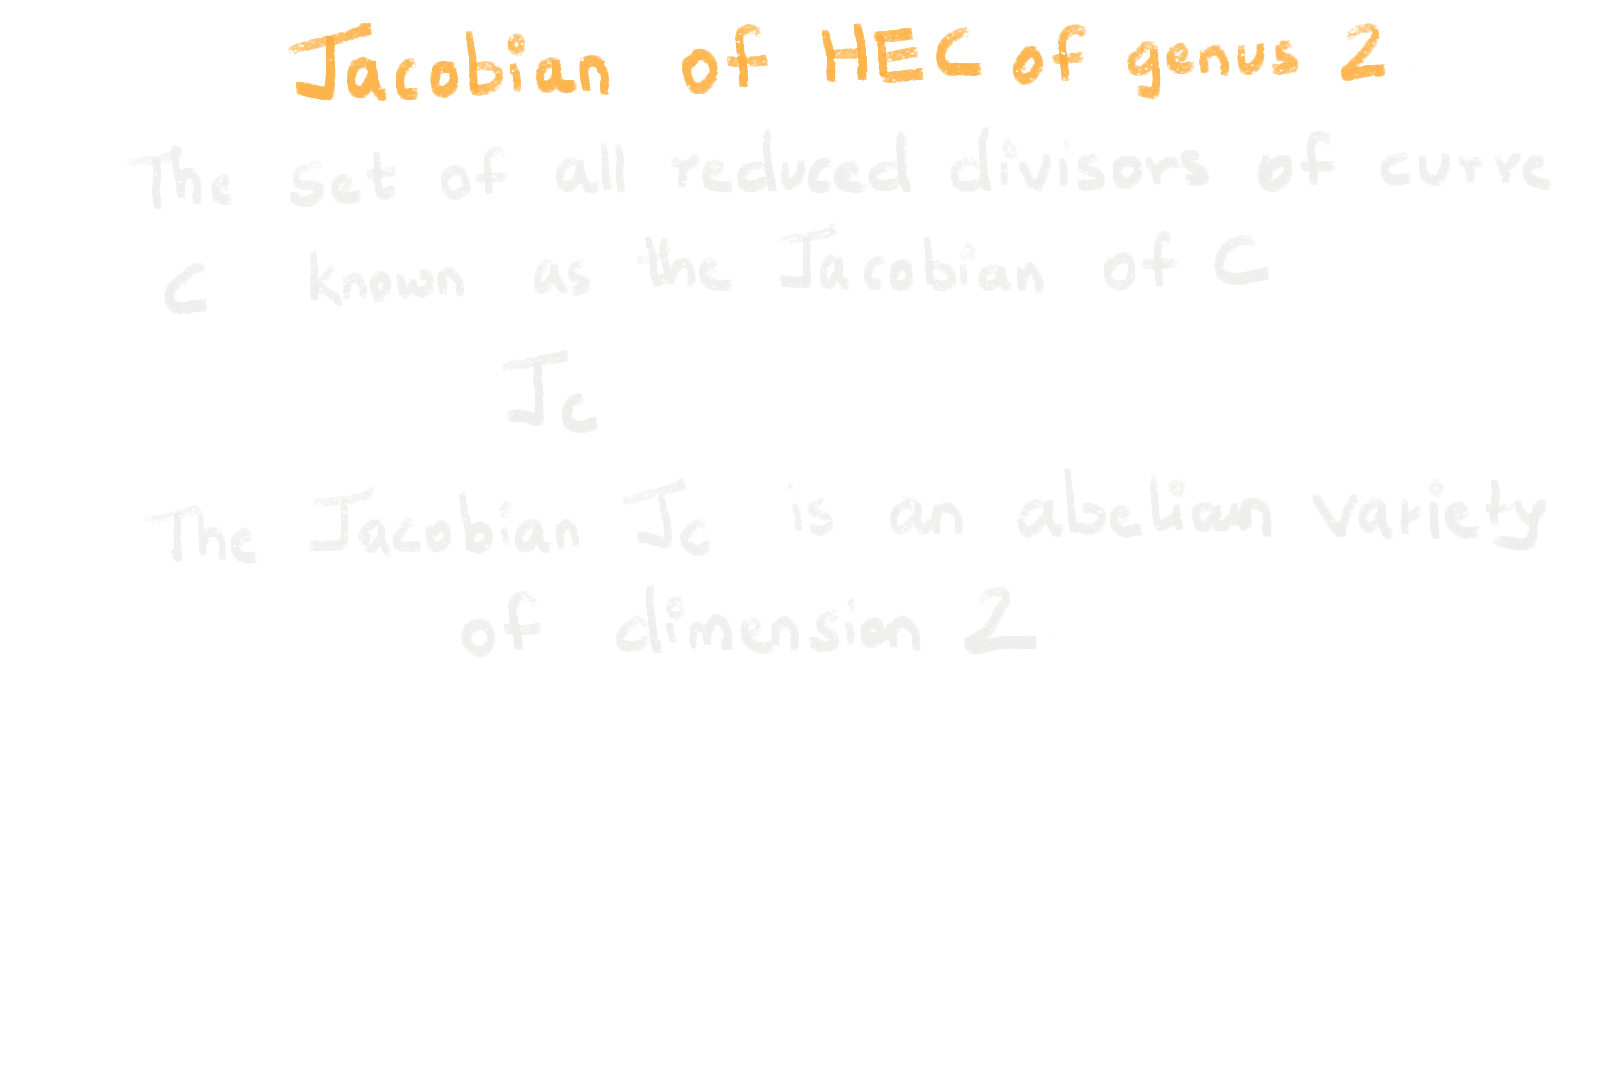 Jacobian of HEC of genus 2
The set of all reduced divisors of curve
C known as the Jacobian of C
Jc
The Jacobian Jc is an abelian variety
of dimension 2